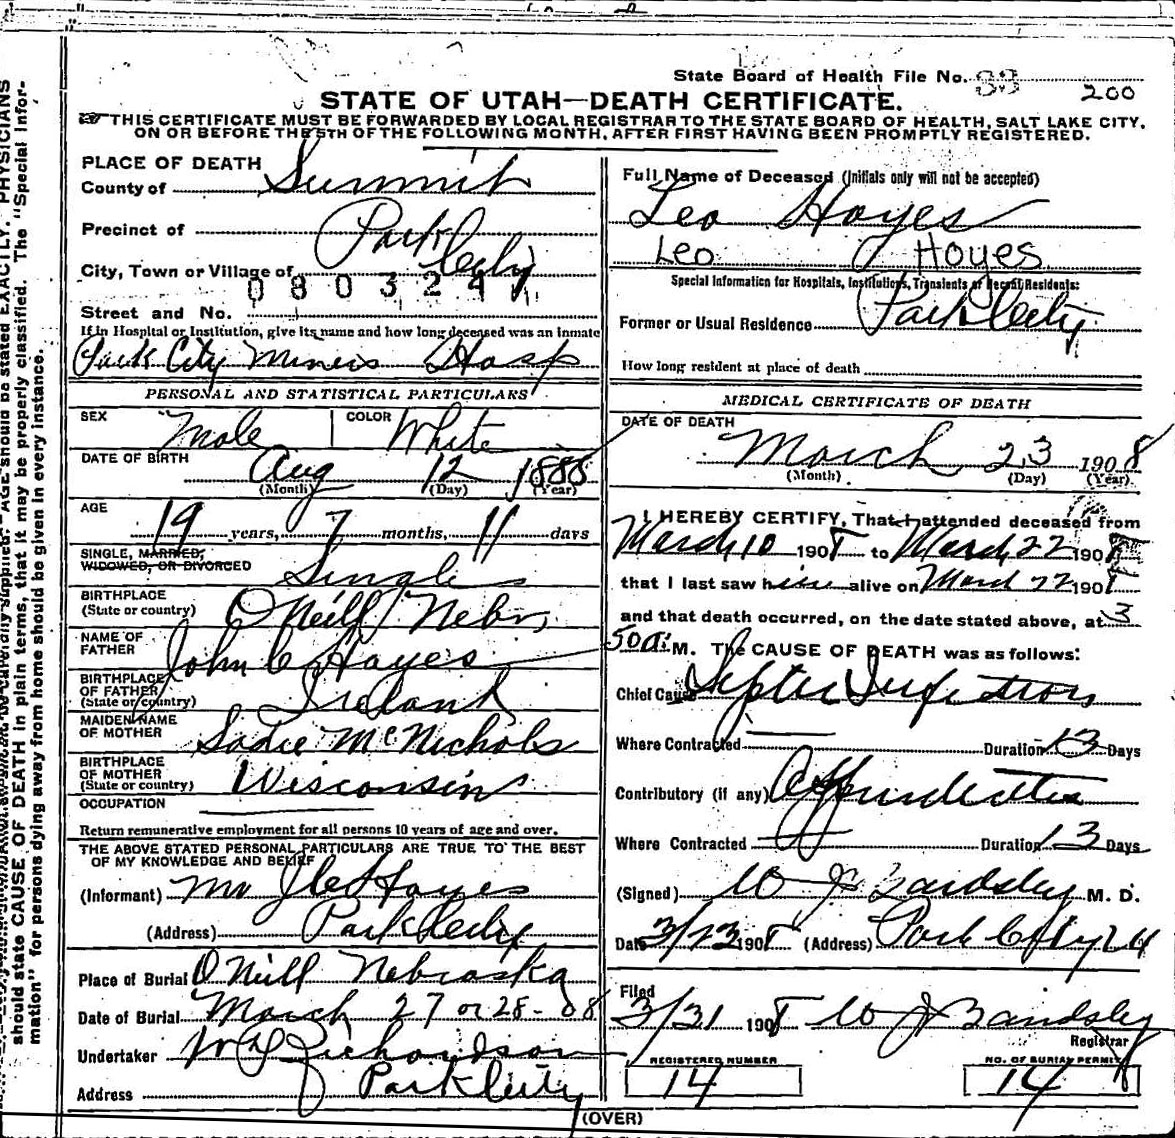 State Board of Health File No. 33 200
STATE OF UTAH—DEATH CERTIFICATE.
THIS CERTIFICATE MUST BE FORWARDED BY LOCAL REGISTRAR TO THE STATE BOARD OF HEALTH, SALT LAKE CITY,
ON OR BEFORE THE 5TH OF THE FOLLOWING MONTH, AFTER FIRST HAVING BEEN PROMPTLY REGISTERED.
PLACE OF DEATH
County of Summit
Precinct of Park City
City, Town or Village of
080324
Street and No.
If in Hospital or Institution, give its name and how long deceased was an inmate
Park City Miners Hosp
PERSONAL AND STATISTICAL PARTICULARS
SEX Male COLOR White
DATE OF BIRTH Aug 12 1888
(Month) (Day) (Year)
AGE 19 years, 7 months, 11 days
SINGLE, MARRIED,
WIDOWED, OR DIVORCED Single
BIRTHPLACE
(State or country) O'Neill Nebr
NAME OF
FATHER John C Hayes
BIRTHPLACE
OF FATHER
(State or country) Ireland
MAIDEN NAME
OF MOTHER Sadie McNichols
BIRTHPLACE
OF MOTHER
(State or country) Wisconsin
OCCUPATION
Return remunerative employment for all persons 10 years of age and over.
THE ABOVE STATED PERSONAL PARTICULARS ARE TRUE TO THE BEST
OF MY KNOWLEDGE AND BELIEF
(Informant) Mr J C Hayes
(Address) Park City
Place of Burial O'Neill Nebraska
Date of Burial March 27 or 28 - 08
Undertaker Richardson
Address Park City
Full Name of Deceased (Initials only will not be accepted)
Leo Hoyes
Leo Hoyes
Special Information for Hospitals, Institutions, Transients or Recent Residents:
Former or Usual Residence Park City
How long resident at place of death
MEDICAL CERTIFICATE OF DEATH
DATE OF DEATH
March 23 1908
(Month) (Day) (Year)
I HEREBY CERTIFY, That I attended deceased from
March 10 1908 to March 22 1908
that I last saw him alive on March 22 1908
and that death occurred, on the date stated above, at 3
50 a. M. The CAUSE OF DEATH was as follows:
Chief Cause Septic Infection
Where Contracted Duration 13 Days
Contributory (if any) Appendicitis
Where Contracted Duration 13 Days
(Signed) W J Bardsley M. D.
Date 3/23 1908 (Address) Park City Ut
Filed
3/31 1908 W J Bardsley
Registrar
REGISTERED NUMBER NO. OF BURIAL PERMIT
14 14
(OVER)
AGE should be stated EXACTLY. PHYSICIANS
should state CAUSE OF DEATH in plain terms, that it may be properly classified. The "Special Infor-
mation" for persons dying away from home should be given in every instance.